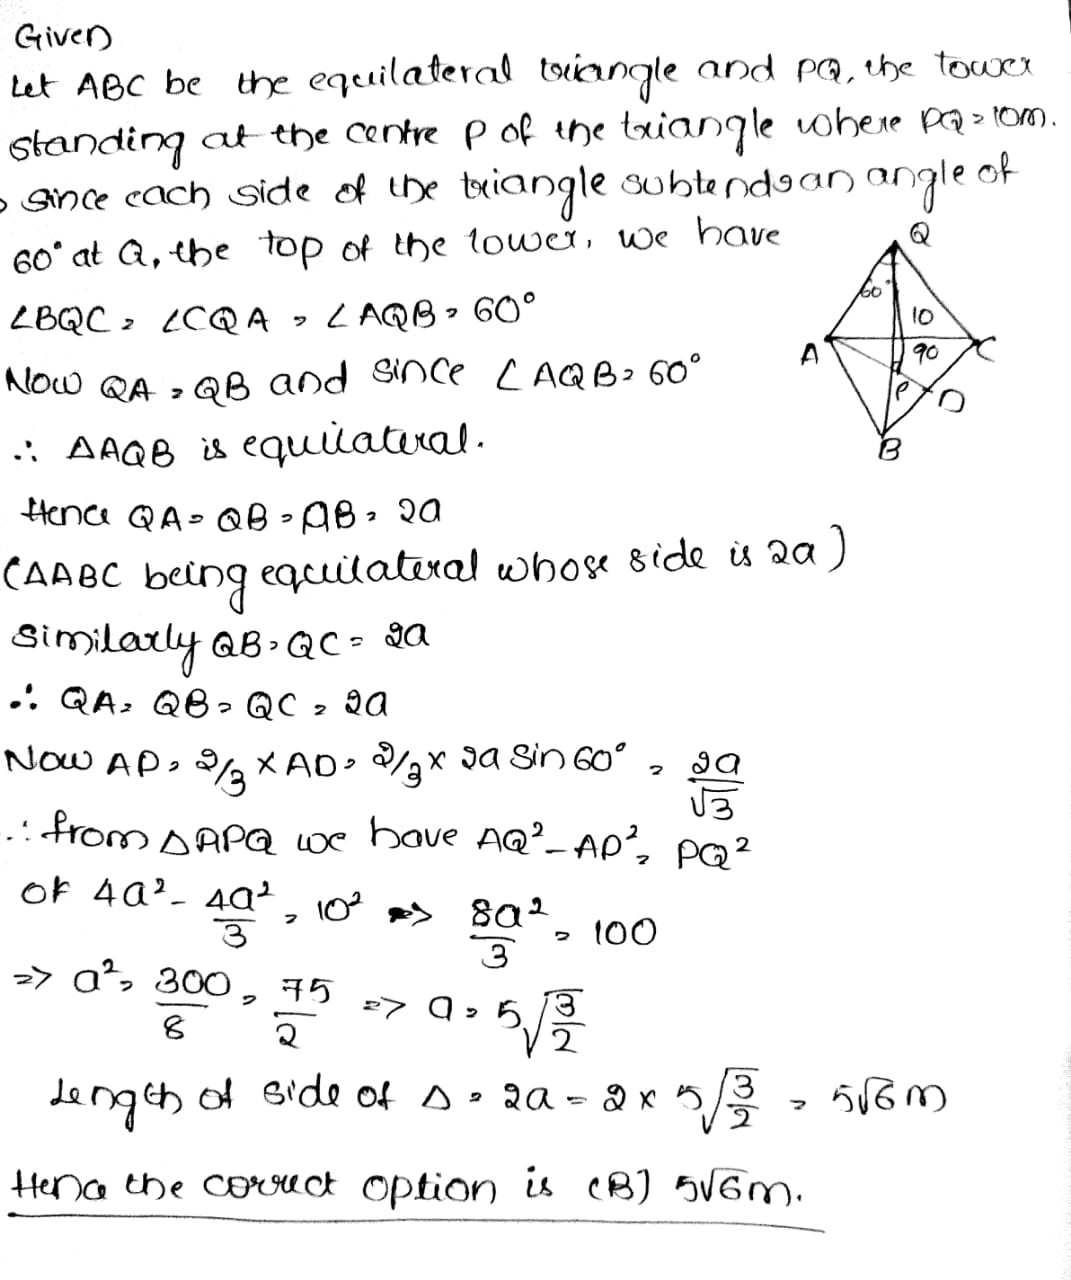 Given
Let ABC be the equilateral triangle and PQ, the tower
standing at the centre P of the triangle where PQ = 10m.
Since each side of the triangle subtends an angle of
60° at Q, the top of the tower, we have
∠BQC = ∠CQA = ∠AQB = 60°
Now QA = QB and since ∠AQB = 60°
∴ ΔAQB is equilateral.
Hence QA = QB = AB = 2a
(ΔABC being equilateral whose side is 2a)
Similarly QB = QC = 2a
∴ QA = QB = QC = 2a
Now AP = 2/3 × AD = 2/3 × 2a Sin 60° = 2a/√3
∴ from ΔAPQ we have AQ² - AP² = PQ²
or 4a² - 4a²/3 = 10² => 8a²/3 = 100
=> a² = 300/8 = 75/2 => a = 5√3/2
Length of side of Δ = 2a = 2 × 5√3/2 = 5√6m
Hence the correct option is (B) 5√6m.
Q
60°
10
A
90
C
P
D
B